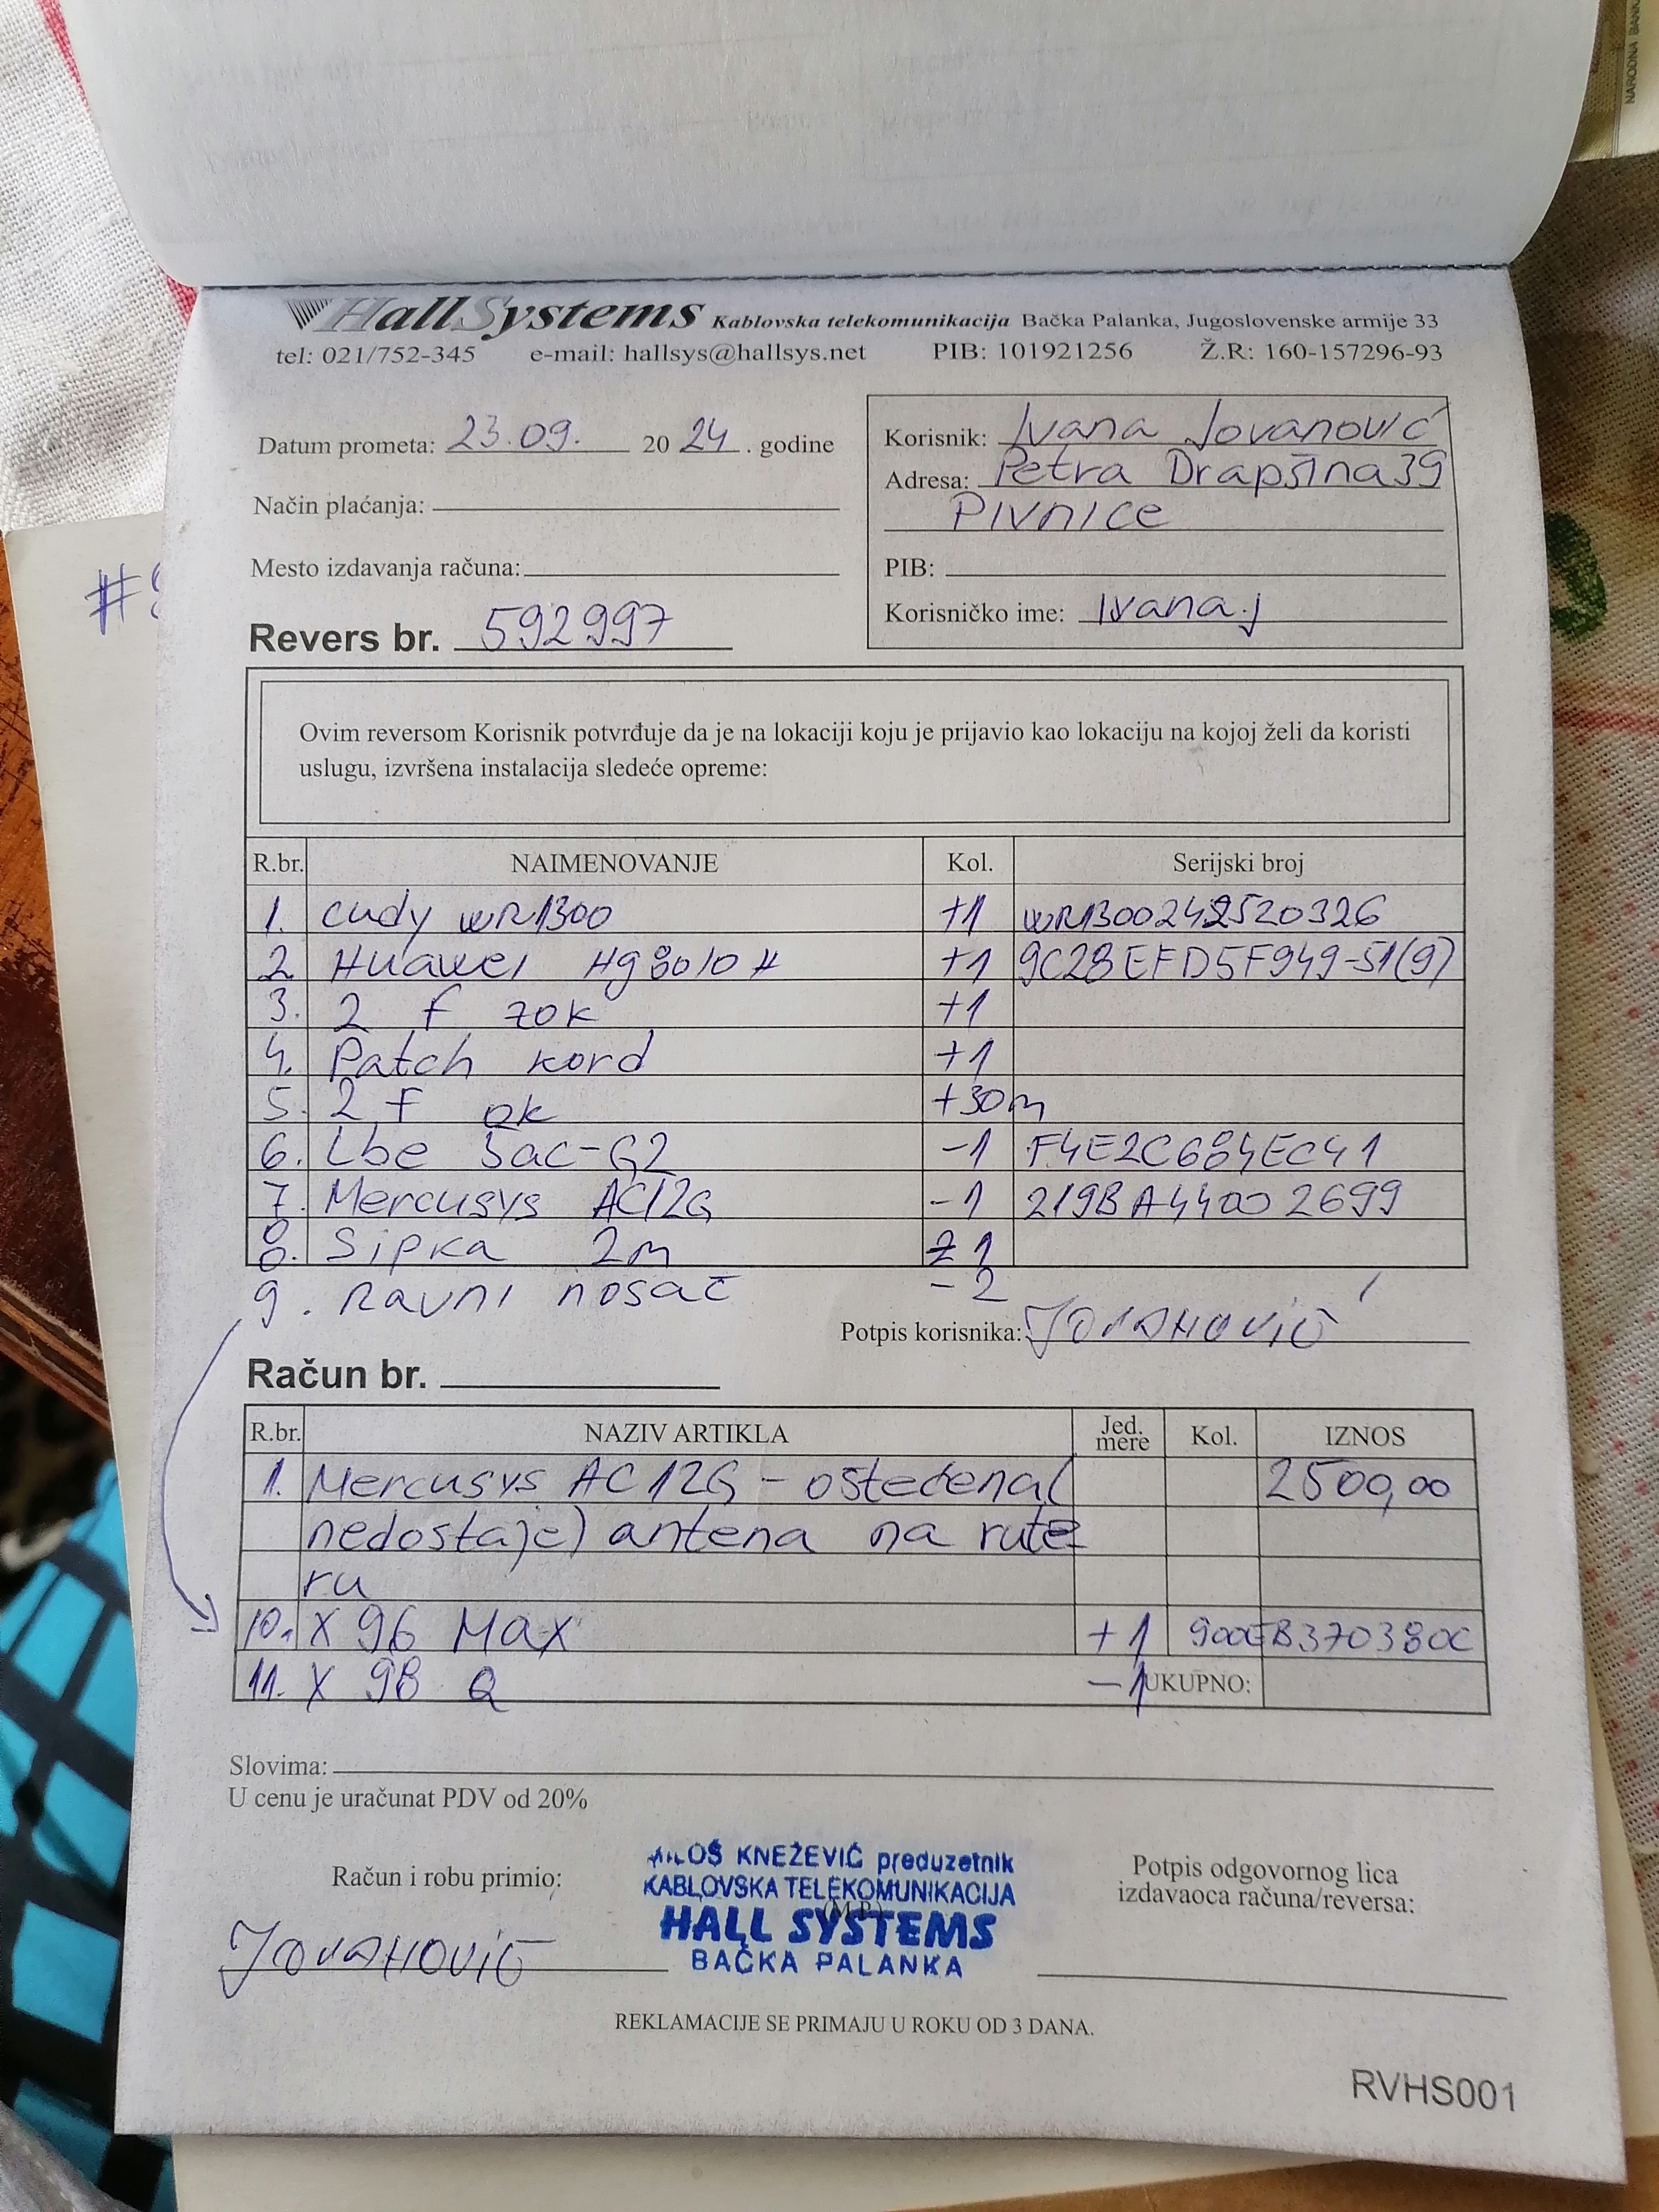 HallSystems Kablovska telekomunikacija Bačka Palanka, Jugoslovenske armije 33
tel: 021/752-345 e-mail: hallsys@hallsys.net PIB: 101921256 Ž.R: 160-157296-93
Datum prometa: 23.09. 2024. godine
Način plaćanja:
Mesto izdavanja računa:
Revers br. 592997
Korisnik: Ivana Jovanović
Adresa: Petra Drapšina 39
Pivnice
PIB:
Korisničko ime: Ivana.j
Ovim reversom Korisnik potvrđuje da je na lokaciji koju je prijavio kao lokaciju na kojoj želi da koristi
uslugu, izvršena instalacija sledeće opreme:
R.br. NAIMENOVANJE Kol. Serijski broj
1. cudy WR1300 +1 WR1300242520326
2. Huawei Hg8010H +1 9C28EFD5F949-51(9)
3. 2 f zok +1
4. Patch kord +1
5. 2 f ok +30m
6. Lbe 5ac-G2 -1 F4E2C684EC41
7. Mercusys AC12G -1 219BA44002699
8. Sipka 2m 1
9. Ravni nosač -2
Potpis korisnika: Jovanović
Račun br.
R.br. NAZIV ARTIKLA Jed. mere Kol. IZNOS
1. Mercusys AC12G - oštećena( 2500,00
nedostaje) antena na rute
ru
10. X 96 Max +1 900EB370380C
11. X 98 Q -1 UKUPNO:
Slovima:
U cenu je uračunat PDV od 20%
Račun i robu primio:
Jovanović
MILOŠ KNEŽEVIĆ preduzetnik
KABLOVSKA TELEKOMUNIKACIJA
(M.P.)
HALL SYSTEMS
BAČKA PALANKA
Potpis odgovornog lica
izdavaoca računa/reversa:
REKLAMACIJE SE PRIMAJU U ROKU OD 3 DANA.
RVHS001